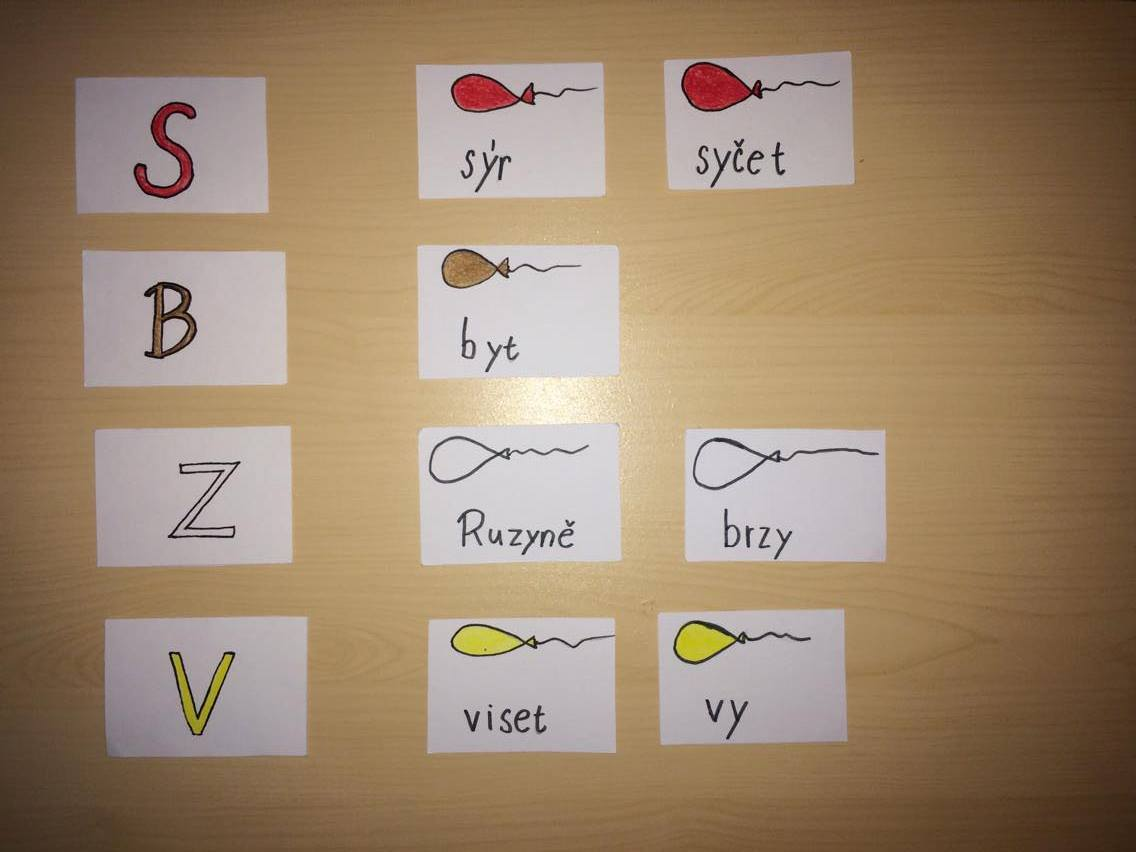 S
sýr syčet
B
byt
Z
Ruzyně brzy
V
viset vy